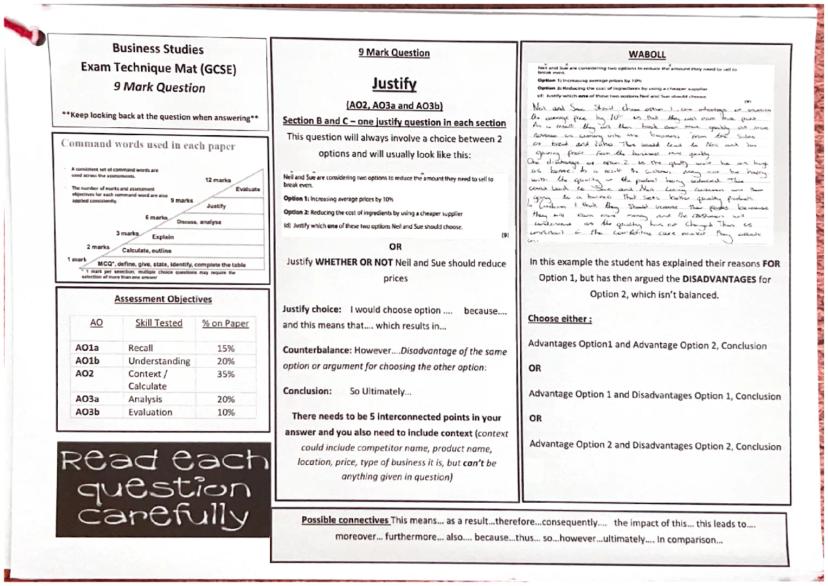 Business Studies
Exam Technique Mat (GCSE)
9 Mark Question
**Keep looking back at the question when answering**
Command words used in each paper
A consistent set of command words are
used across the assessments.
The number of marks and assessment
objectives for each command word are also
applied consistently.
12 marks
Evaluate
9 marks
Justify
6 marks
Discuss, analyse
3 marks
Explain
2 marks
Calculate, outline
1 mark
MCQ*, define, give, state, identify, complete the table
* 1 mark per selection, multiple choice questions may require the
selection of more than one answer
Assessment Objectives
AO Skill Tested % on Paper
AO1a Recall 15%
AO1b Understanding 20%
AO2 Context / Calculate 35%
AO3a Analysis 20%
AO3b Evaluation 10%
Read each
question
carefully
9 Mark Question
Justify
(AO2, AO3a and AO3b)
Section B and C – one justify question in each section
This question will always involve a choice between 2
options and will usually look like this:
Neil and Sue are considering two options to reduce the amount they need to sell to
break even.
Option 1: Increasing average prices by 10%
Option 2: Reducing the cost of ingredients by using a cheaper supplier
(d) Justify which one of these two options Neil and Sue should choose.
(9)
OR
Justify WHETHER OR NOT Neil and Sue should reduce
prices
Justify choice: I would choose option .... because....
and this means that.... which results in...
Counterbalance: However....Disadvantage of the same
option or argument for choosing the other option:
Conclusion: So Ultimately...
There needs to be 5 interconnected points in your
answer and you also need to include context (context
could include competitor name, product name,
location, price, type of business it is, but can't be
anything given in question)
WABOLL
Neil and Sue are considering two options to reduce the amount they need to sell to
break even.
Option 1: Increasing average prices by 10%
Option 2: Reducing the cost of ingredients by using a cheaper supplier
(d) Justify which one of these two options Neil and Sue should choose.
(9)
In this example the student has explained their reasons FOR
Option 1, but has then argued the DISADVANTAGES for
Option 2, which isn't balanced.
Choose either :
Advantages Option1 and Advantage Option 2, Conclusion
OR
Advantage Option 1 and Disadvantages Option 1, Conclusion
OR
Advantage Option 2 and Disadvantages Option 2, Conclusion
Possible connectives This means... as a result...therefore...consequently.... the impact of this... this leads to....
moreover... furthermore... also.... because...thus... so...however...ultimately.... In comparison...